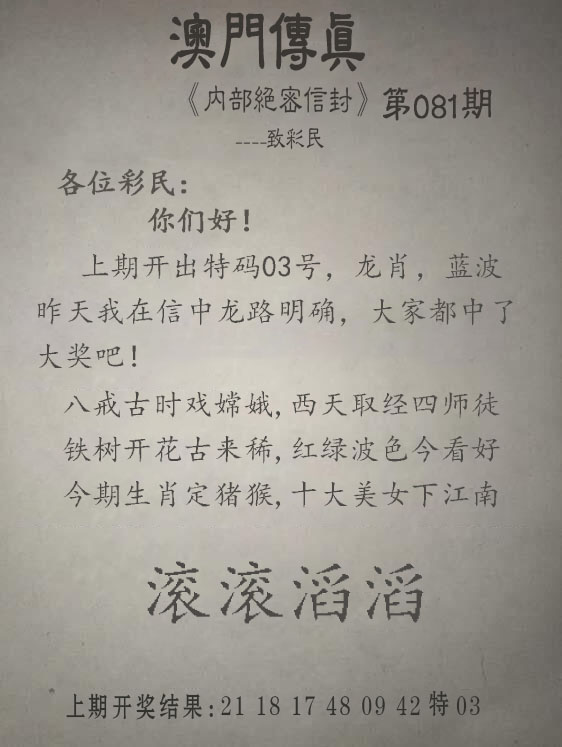 澳門傳真
《内部絕密信封》第081期
----致彩民
各位彩民：
你们好！
上期开出特码03号，龙肖，蓝波
昨天我在信中龙路明确，大家都中了
大奖吧！
八戒古时戏嫦娥,西天取经四师徒
铁树开花古来稀,红绿波色今看好
今期生肖定猪猴,十大美女下江南
滚滚滔滔
上期开奖结果:21 18 17 48 09 42 特 03